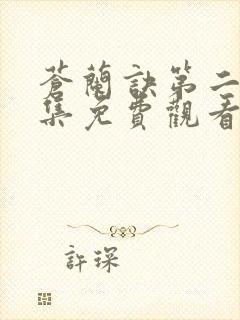 蒼蘭訣第二
集免費觀看
許琛